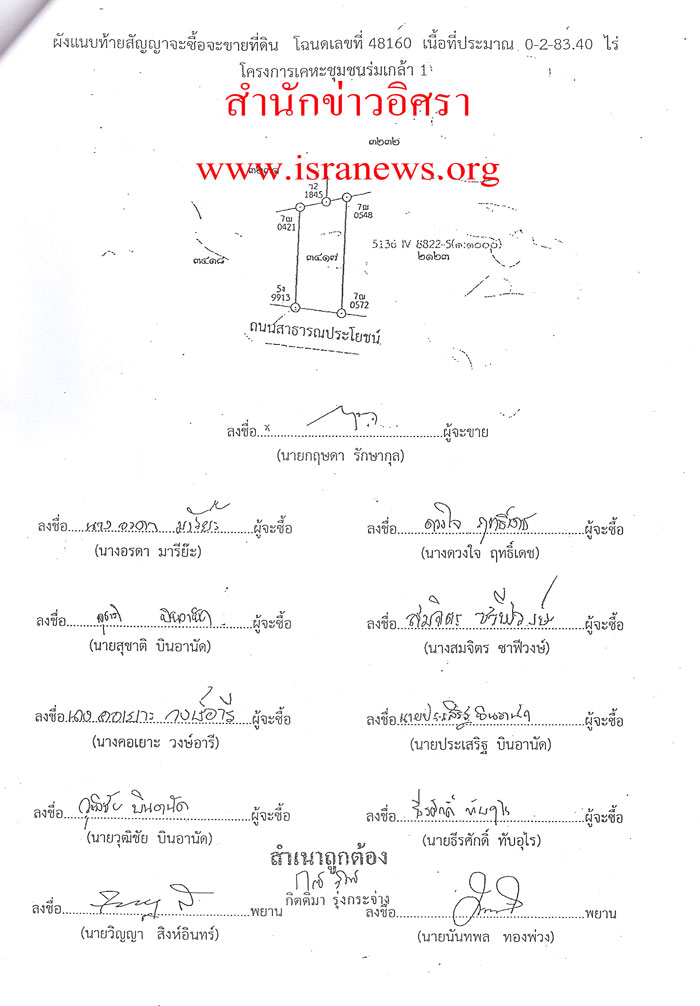 ผังแนบท้ายสัญญาจะซื้อจะขายที่ดิน โฉนดเลขที่ 48160 เนื้อที่ประมาณ 0-2-83.40 ไร่
โครงการเคหะชุมชนร่มเกล้า 1
สำนักข่าวอิศรา
๓๒๓๒
www.isranews.org
ว2
1845
7ฌ
0421
7ฌ
0548
๓๔๑๘
๓๔๑๗
5136 IV 8822-5(๑:๑๐๐๐)
๒๑๒๓
5ง
9913
7ฌ
0572
ถนนสาธารณประโยชน์
ลงชื่อ x ผู้จะขาย
(นายกฤษดา รักษากุล)
ลงชื่อ นางอรดา มารีย๊ะ ผู้จะซื้อ ลงชื่อ ดวงใจ ฤทธิ์เดช ผู้จะซื้อ
(นางอรดา มารีย๊ะ) (นางดวงใจ ฤทธิ์เดช)
ลงชื่อ สุชาติ บินอานัด ผู้จะซื้อ ลงชื่อ สมจิตร ซาฟีวงษ์ ผู้จะซื้อ
(นายสุชาติ บินอานัด) (นางสมจิตร ซาฟีวงษ์)
ลงชื่อ นางคอเยาะ วงษ์อารี ผู้จะซื้อ ลงชื่อ นายประเสริฐ บินอานัด ผู้จะซื้อ
(นางคอเยาะ วงษ์อารี) (นายประเสริฐ บินอานัด)
ลงชื่อ วุฒิชัย บินอานัด ผู้จะซื้อ ลงชื่อ ธีรศักดิ์ ทับอุไร ผู้จะซื้อ
(นายวุฒิชัย บินอานัด) (นายธีรศักดิ์ ทับอุไร)
สำเนาถูกต้อง
กิตติมา รุ่งกระจ่าง
ลงชื่อ พยาน ลงชื่อ พยาน
(นายวิญญา สิงห์อินทร์) (นายนันทพล ทองพ่วง)